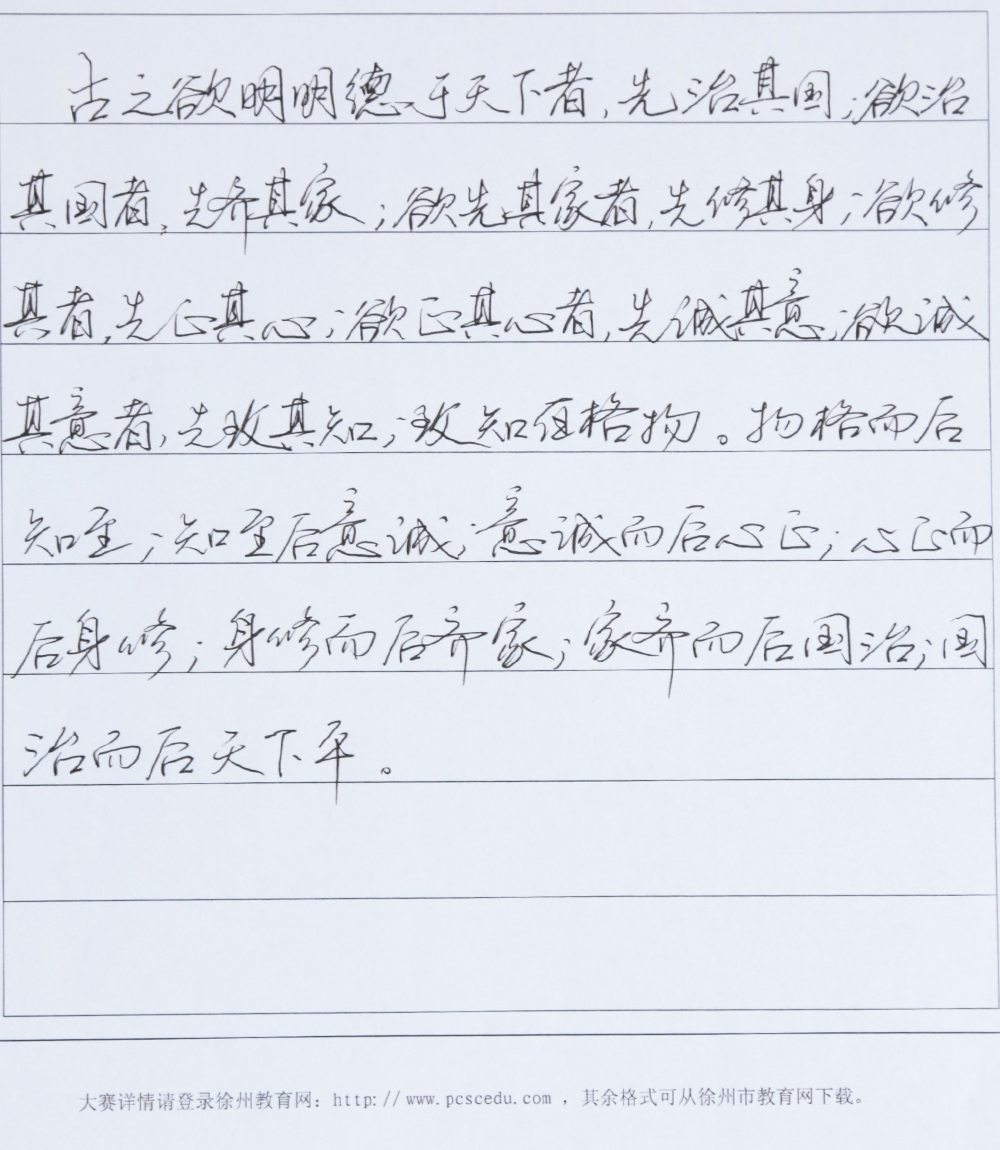 古之欲明明德于天下者,先治其国;欲治
其国者,先齐其家;欲先其家者,先修其身;欲修
其者,先正其心;欲正其心者,先诚其意;欲诚
其意者,先致其知;致知在格物。物格而后
知至;知至后意诚;意诚而后心正;心正而
后身修;身修而后齐家;家齐而后国治;国
治而后天下平。
大赛详情请登录徐州教育网:http://www.pcscedu.com,其余格式可从徐州市教育网下载。